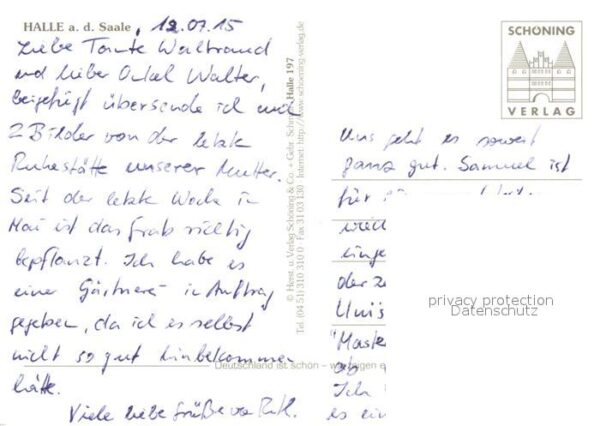 HALLE a. d. Saale, 12.07.15
Liebe Tante Waltraud
und lieber Onkel Walter,
beigefügt übersende ich
2 Bilder von der letzte
Ruhestätte unserer Mutter.
Seit der letzte Woche in
Mai ist das Grab richtig
bepflanzt. Ich habe es
einer Gärtnerei in Auftrag
gegeben, da ich es selbst
nicht so gut hinbekommen
hätte.
Viele liebe Grüße von
SCHÖNING
VERLAG
Uns geht es soweit
ganz gut. Samuel ist
für
der
Unis
"Maste
ob
Ich
es ein
© Herst. u. Verlag Schöning & Co. + Gebr. Schmidt
Halle 197
Tel. (04 51) 310 310 0 · Fax 31 03 130 · Internet: http://www.schoening-verlag.de
Deutschland ist schön –
privacy protection
Datenschutz